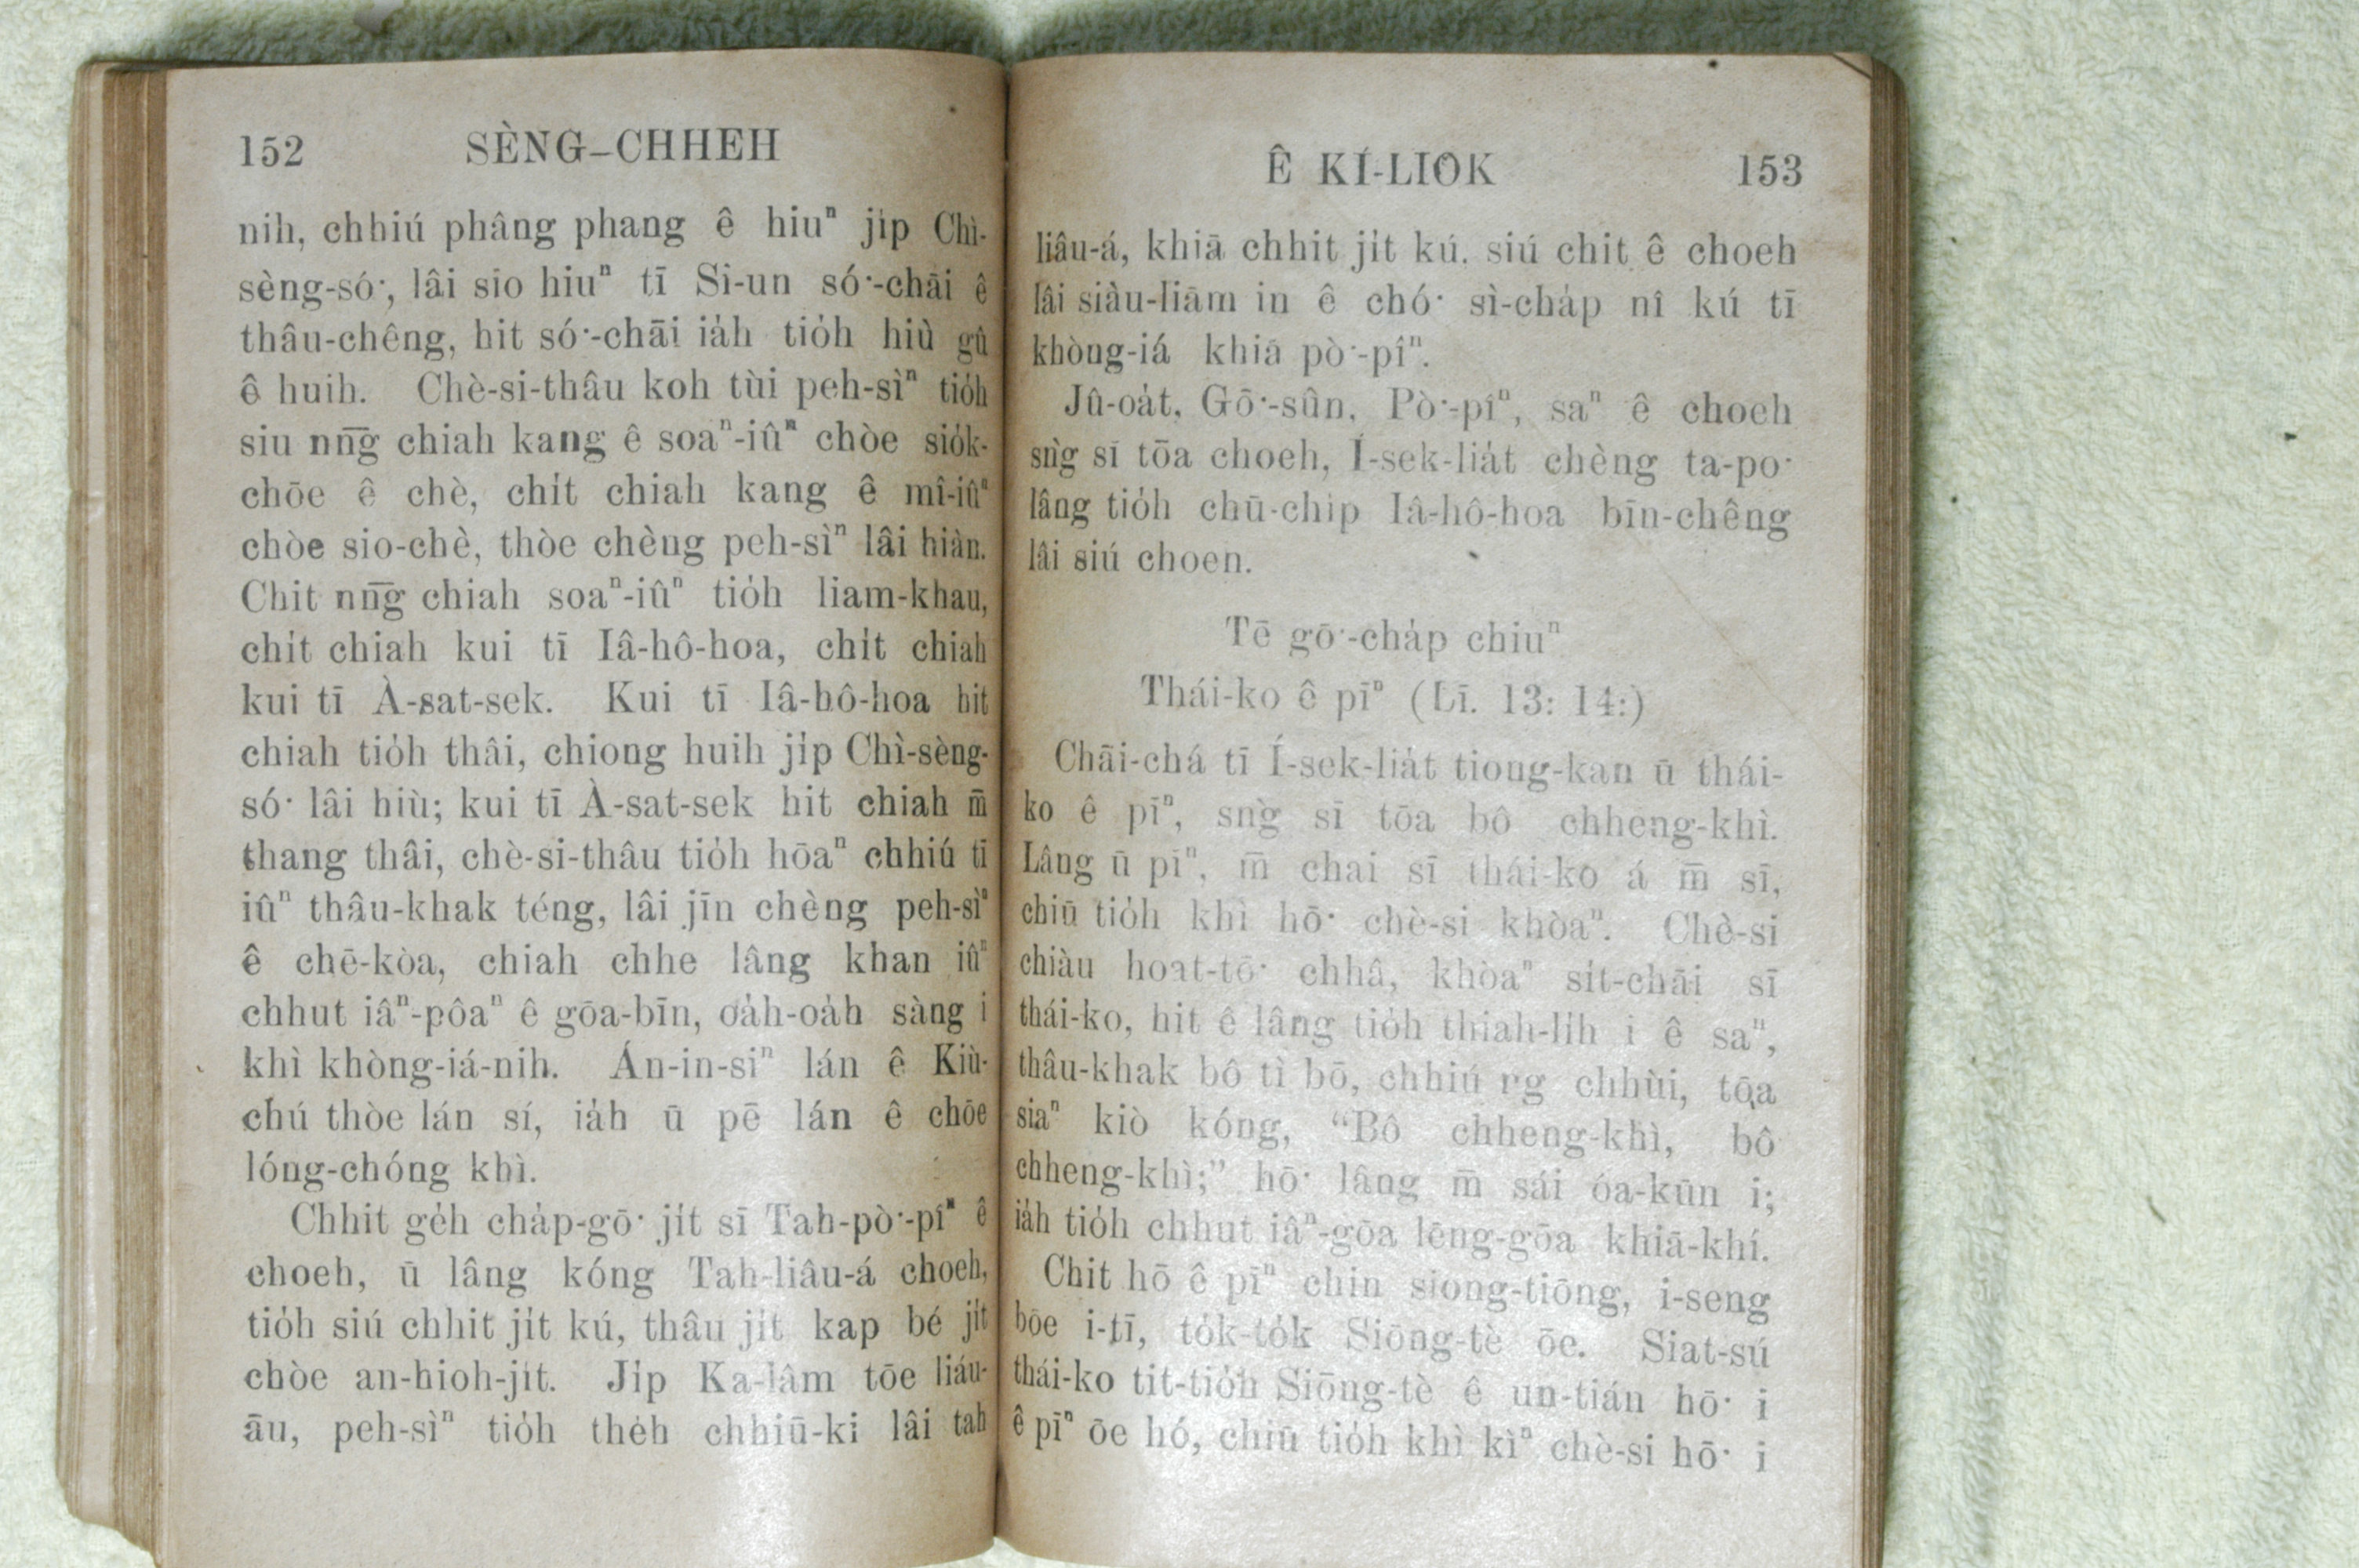 152 SÈNG-CHHEH
nih, chhiú phâng phang ê hiuⁿ ji̍p Chì-
sèng-só͘, lâi sio hiuⁿ tī Si-un só͘-chāi ê
thâu-chêng, hit só͘-chāi ia̍h tio̍h hiù gû
ê huih. Chè-si-thâu koh tùi peh-sìⁿ tio̍h
siu nn̄g chiah kang ê soaⁿ-iûⁿ chòe sio̍k-
chōe ê chè, chi̍t chiah kang ê mî-iûⁿ
chòe sio-chè, thòe chèng peh-sìⁿ lâi hiàn.
Chit nn̄g chiah soaⁿ-iûⁿ tio̍h liam-khau,
chi̍t chiah kui tī Iâ-hô-hoa, chi̍t chiah
kui tī À-sat-sek. Kui tī Iâ-hô-hoa hit
chiah tio̍h thâi, chiong huih ji̍p Chì-sèng-
só͘ lâi hiù; kui tī À-sat-sek hit chiah m̄
thang thâi, chè-si-thâu tio̍h hōaⁿ chhiú tī
iûⁿ thâu-khak téng, lâi jīn chèng peh-sìⁿ
ê chē-kòa, chiah chhe lâng khan iûⁿ
chhut iâⁿ-pôaⁿ ê gōa-bīn, oa̍h-oa̍h sàng i
khì khòng-iá-nih. Án-in-siⁿ lán ê Kiù-
chú thòe lán sí, ia̍h ū pē lán ê chōe
lóng-chóng khì.
Chhit ge̍h cha̍p-gō͘ ji̍t sī Tah-pò͘-pîⁿ ê
choeh, ū lâng kóng Tah-liâu-á choeh,
tio̍h siú chhit ji̍t kú, thâu ji̍t kap bé ji̍t
chòe an-hioh-ji̍t. Ji̍p Ka-lâm tōe liáu-
āu, peh-sìⁿ tio̍h the̍h chhiū-ki lâi tah
Ê KÍ-LIO̍K 153
liâu-á, khiā chhit ji̍t kú. siú chit ê choeh
lâi siàu-liām in ê chó͘ sì-cha̍p nî kú tī
khòng-iá khiā pò͘-pîⁿ.
Jû-oa̍t, Gō͘-sûn, Pò͘-pîⁿ, saⁿ ê choeh
sǹg sī tōa choeh, Í-sek-lia̍t chèng ta-po͘
lâng tio̍h chū-chi̍p Iâ-hô-hoa bīn-chêng
lâi siú choen.
Tē gō͘-cha̍p chiuⁿ
Thái-ko ê pīⁿ (Lī. 13: 14:)
Chāi-chá tī Í-sek-lia̍t tiong-kan ū thái-
ko ê pīⁿ, sǹg sī tōa bô chheng-khì.
Lâng ū pīⁿ, m̄ chai sī thái-ko á m̄ sī,
chiū tio̍h khì hō͘ chè-si khòaⁿ. Chè-si
chiàu hoat-tō͘ chhâ, khòaⁿ si̍t-chāi sī
thái-ko, hit ê lâng tio̍h thiah-li̍h i ê saⁿ,
thâu-khak bô tì bō, chhiú ng chhùi, tōa
siaⁿ kiò kóng, “Bô chheng-khì, bô
chheng-khì;” hō͘ lâng m̄ sái óa-kūn i;
ia̍h tio̍h chhut iâⁿ-gōa lēng-gōa khiā-khí.
Chit hō ê pīⁿ chin siong-tiōng, i-seng
bōe i-tī, to̍k-to̍k Siōng-tè ōe. Siat-sú
thái-ko tit-tio̍h Siōng-tè ê un-tián hō͘ i
ê pīⁿ ōe hó, chiū tio̍h khì kìⁿ chè-si hō͘ i